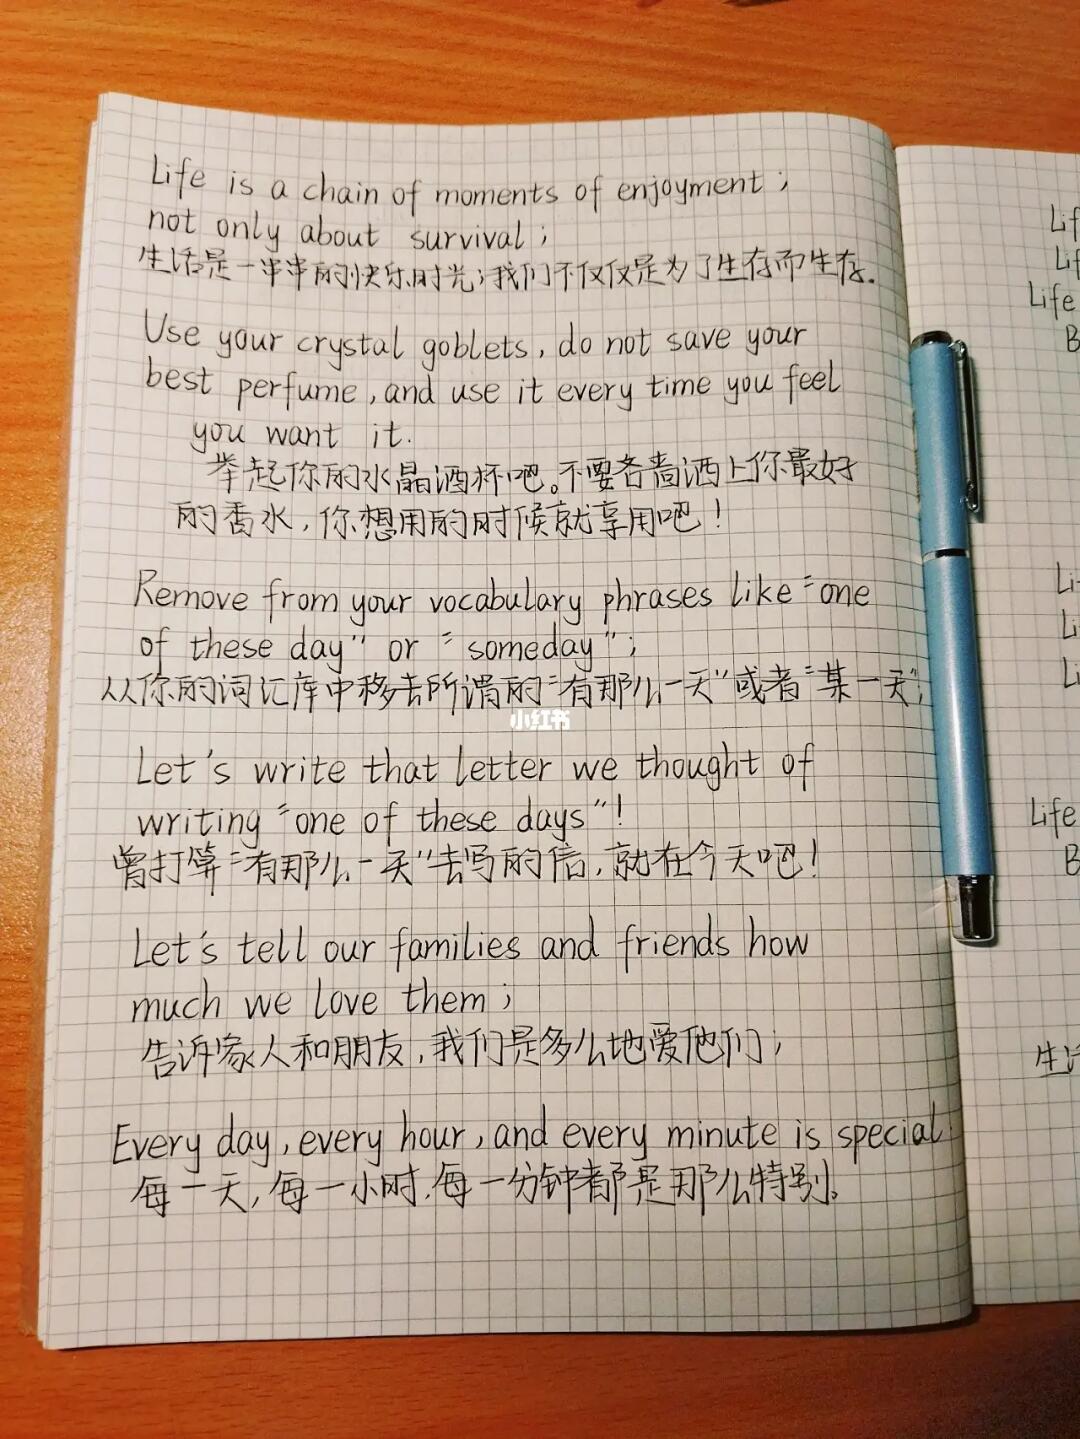 Life is a chain of moments of enjoyment;
not only about survival;
生活是一串串的快乐时光;我们不仅仅是为了生存而生存.
Use your crystal goblets, do not save your
best perfume, and use it every time you feel
you want it.
举起你的水晶酒杯吧。不要吝啬洒上你最好
的香水,你想用的时候就享用吧!
Remove from your vocabulary phrases like "one
of these day" or "someday";
从你的词汇库中移去所谓的"有那么一天"或者"某一天";
小红书
Let's write that letter we thought of
writing "one of these days"!
曾打算"有那么一天"去写的信,就在今天吧!
Let's tell our families and friends how
much we love them;
告诉家人和朋友,我们是多么地爱他们;
Every day, every hour, and every minute is special
每一天,每一小时,每一分钟都是那么特别。
Lif
Lif
Life
B
Li
Li
Li
Life
B
生活